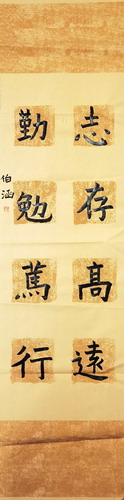 志存高遠
勤勉篤行
伯涵